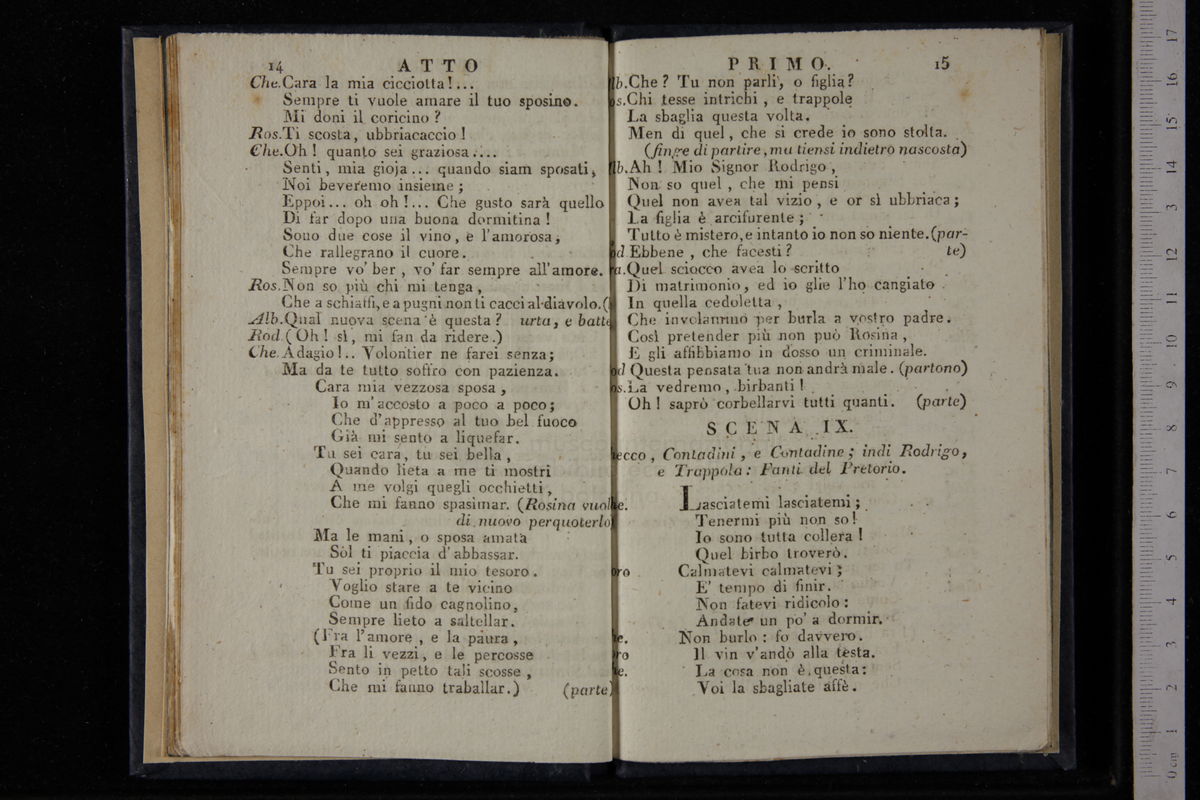 14 ATTO
Che. Cara la mia cicciotta!...
Sempre ti vuole amare il tuo sposino.
Mi doni il coricino?
Ros. Ti scosta, ubbriacaccio!
Che. Oh! quanto sei graziosa....
Senti, mia gioja... quando siam sposati,
Noi beveremo insieme;
Eppoi... oh oh!... Che gusto sarà quello
Di far dopo una buona dormitina!
Sono due cose il vino, e l'amorosa,
Che rallegrano il cuore.
Sempre vo' ber, vo' far sempre all'amore.
Ros. Non so più chi mi tenga,
Che a schiaffi, e a pugni non ti cacci al diavolo. (
Alb. Qual nuova scena è questa? urta, e batte
Rod. (Oh! sì, mi fan da ridere.)
Che. Adagio!.. Volontier ne farei senza;
Ma da te tutto soffro con pazienza.
Cara mia vezzosa sposa,
Io m'accosto a poco a poco;
Che d'appresso al tuo bel fuoco
Già mi sento a liquefar.
Tu sei cara, tu sei bella,
Quando lieta a me ti mostri
A me volgi quegli occhietti,
Che mi fanno spasimar. (Rosina vuol
di nuovo perquoterlo
Ma le mani, o sposa amata
Sol ti piaccia d'abbassar.
Tu sei proprio il mio tesoro.
Voglio stare a te vicino
Come un fido cagnolino,
Sempre lieto a saltellar.
(Fra l'amore, e la paura,
Fra li vezzi, e le percosse
Sento in petto tali scosse,
Che mi fanno traballar.) (parte)
PRIMO. 15
lb. Che? Tu non parli, o figlia?
os. Chi tesse intrichi, e trappole
La sbaglia questa volta.
Men di quel, che si crede io sono stolta.
(finge di partire, ma tiensi indietro nascosta)
lb. Ah! Mio Signor Rodrigo,
Non so quel, che mi pensi
Quel non avea tal vizio, e or sì ubbriaca;
La figlia è arcifurente;
Tutto è mistero, e intanto io non so niente. (par-
od Ebbene, che facesti? te)
ra. Quel sciocco avea lo scritto
Di matrimonio, ed io glie l'ho cangiato
In quella cedoletta,
Che involammo per burla a vostro padre.
Così pretender più non può Rosina,
E gli affibbiamo in dosso un criminale.
od Questa pensata tua non andrà male. (partono)
os. La vedremo, birbanti!
Oh! saprò corbellarvi tutti quanti. (parte)
SCENA IX.
ecco, Contadini, e Contadine; indi Rodrigo,
e Trappola: Fanti del Pretorio.
e. Lasciatemi lasciatemi;
Tenermi più non so!
Io sono tutta collera!
Quel birbo troverò.
oro Calmatevi calmatevi;
E' tempo di finir.
Non fatevi ridicolo:
Andate un po' a dormir.
e. Non burlo: fo davvero.
ro Il vin v'andò alla testa.
e. La cosa non è questa:
Voi la sbagliate affè.
0 cm 1 2 3 4 5 6 7 8 9 10 11 12 13 14 15 16 17